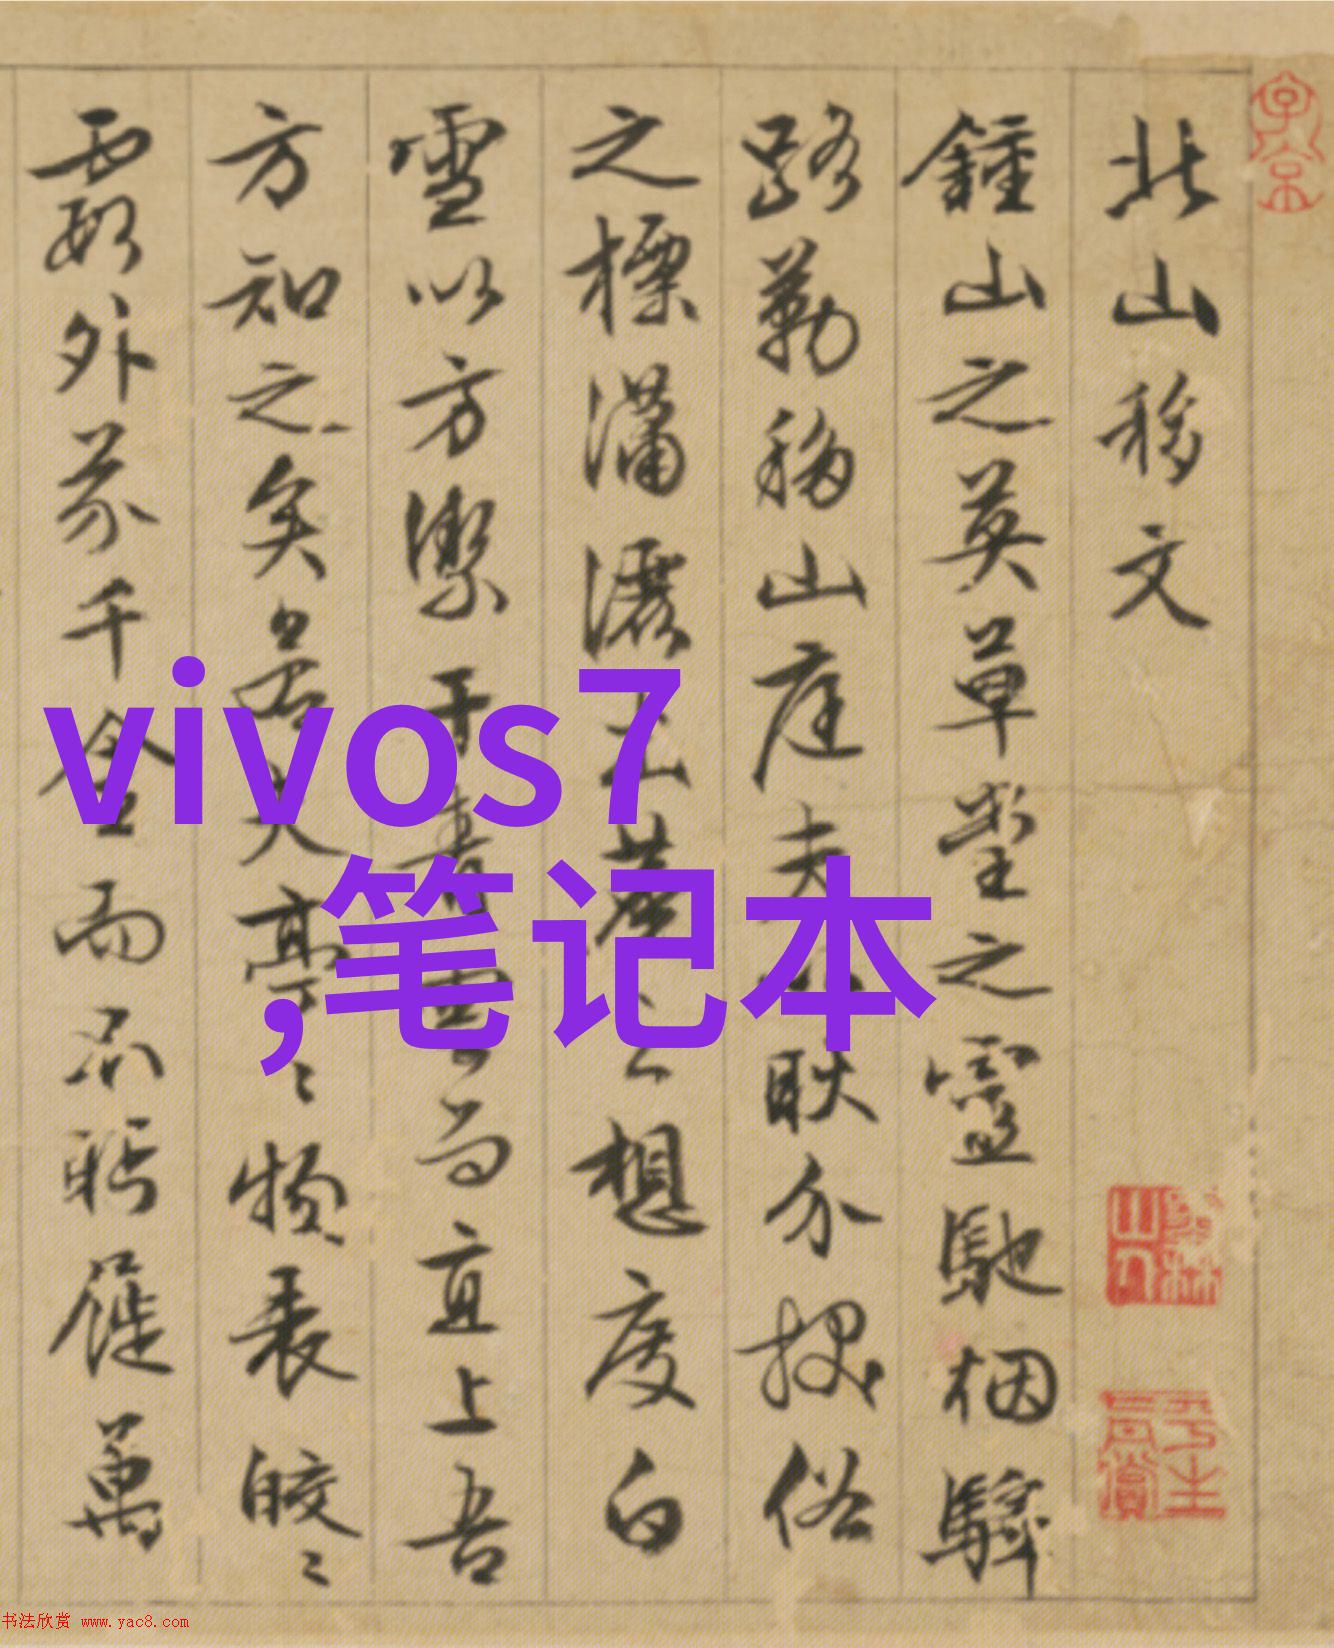 北山移文
鍾山之英草堂之靈馳烟驛
路勒移山庭夫以耿介拔俗
之標瀟灑出塵之想度白
雪以方潔干青雲而直上吾
方知之矣若其亭〻物表皎〻
霞外芥千金而不眄屣萬
vivos7
,笔记本
书法欣赏 www.yac8.com